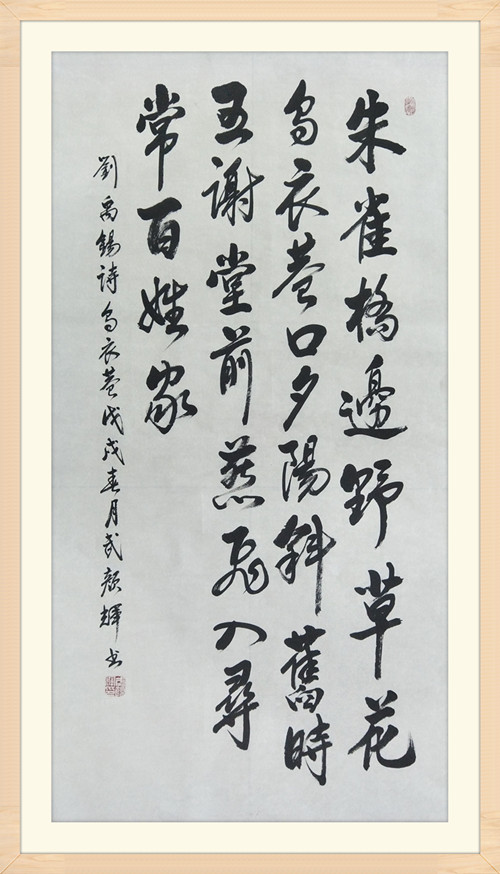 朱雀橋邊野草花
烏衣巷口夕陽斜舊時
王謝堂前燕飛入尋
常百姓家
劉禹錫詩烏衣巷戊戌春月武顏輝书